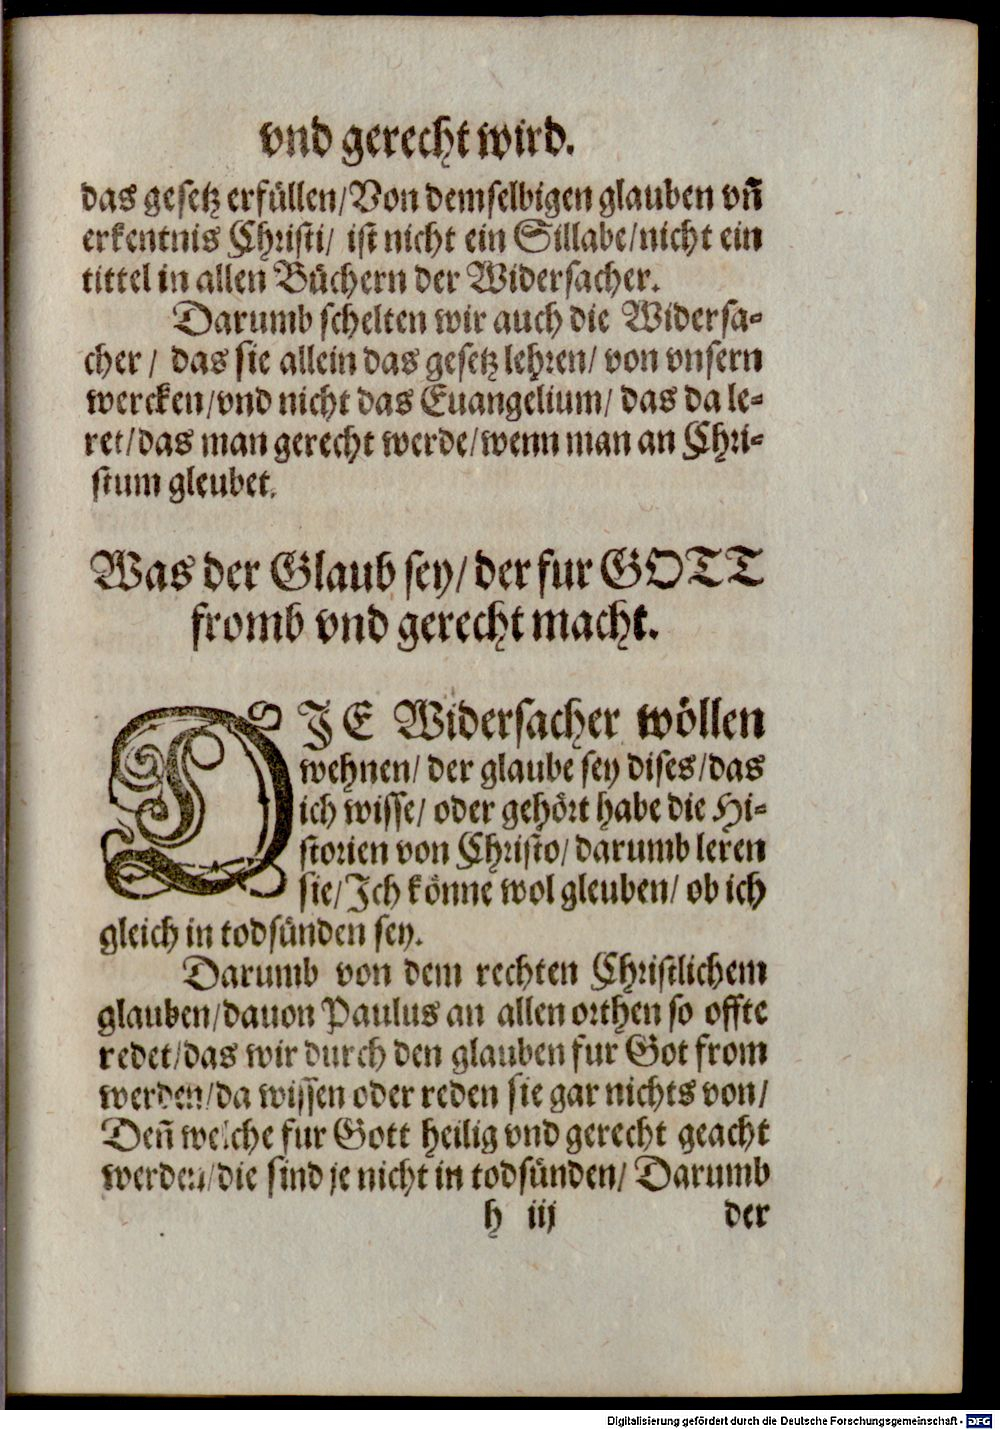 vnd gerecht wird.
das gesetz erfüllen/Von demselbigen glauben vn̄
erkentnis Christi/ ist nicht ein Sillabe/nicht ein
tittel in allen Büchern der Widersacher.
Darumb schelten wir auch die Widersa-
cher/ das sie allein das gesetz lehren/ von vnsern
wercken/vnd nicht das Euangelium/ das da le-
ret/das man gerecht werde/wenn man an Chri-
stum gleubet.
Was der Glaub sey/ der fur GOTT
fromb vnd gerecht macht.
DJE Widersacher wöllen
wehnen/ der glaube sey dises/das
ich wisse/ oder gehört habe die Hi-
storien von Christo/ darumb leren
sie/Jch könne wol gleuben/ ob ich
gleich in todsünden sey.
Darumb von dem rechten Christlichem
glauben/dauon Paulus an allen orthen so offte
redet/das wir durch den glauben fur Got from
werden/da wissen oder reden sie gar nichts von/
Den̄ welche fur Gott heilig vnd gerecht geacht
werden/die sind je nicht in todsünden/ Darumb
h iij der
Digitalisierung gefördert durch die Deutsche Forschungsgemeinschaft - DFG